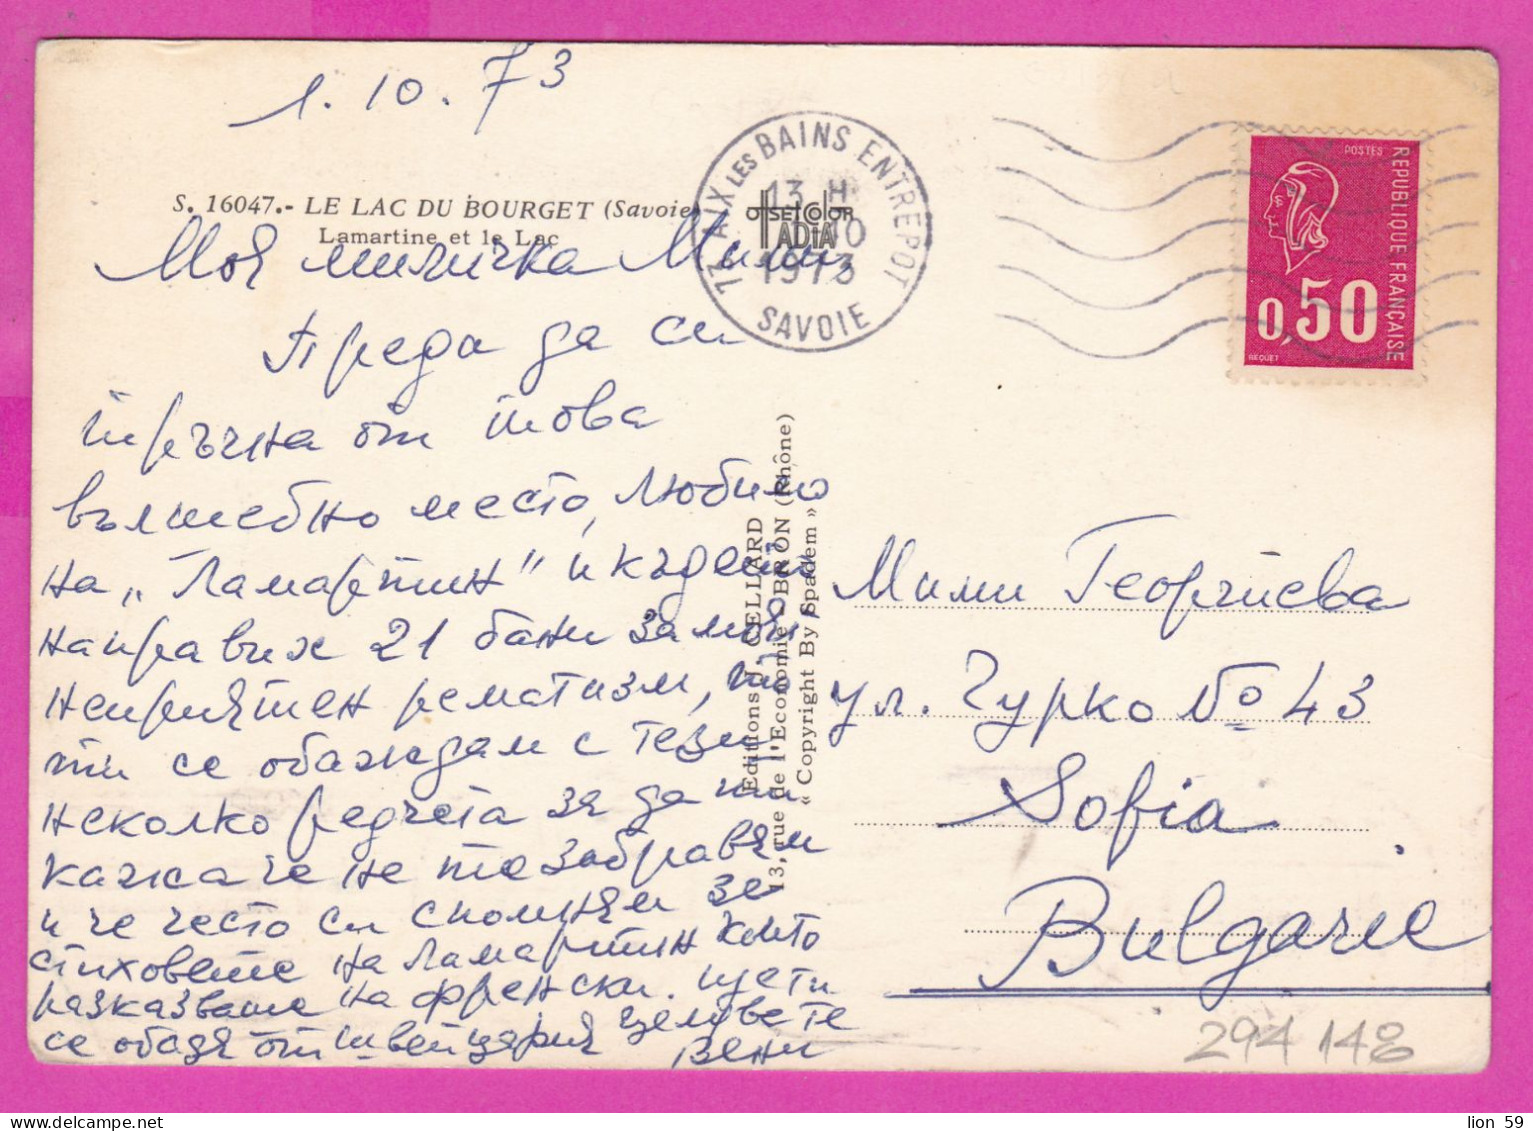 1.10.73
S. 16047.- LE LAC DU BOURGET (Savoie)
Lamartine et le Lac
Моя миличка Мими,
Преди да си
тръгна от това
вълшебно место, любимо
на „Ламартин" и където
направих 21 бани за моя
неприятен рематизм,
ти се обаждам с тези
неколко редчета за да ти
кажа че не те забравям
и че често си спомням за
стиховете на Ламартин които
разказваше на френски. Щети
се обадя от Швейцария Целувете
Вени
73 AIX LES BAINS ENTREPOT
13 H
10
1973
SAVOIE
OFFSETCOLOR
IADIA
POSTES
REPUBLIQUE FRANÇAISE
0,50
BEQUET
Editions J. CELLARD
13, rue de l'Economie BRON (Rhône)
« Copyright By Spadem »
Мими Георгиева
ул. Гурко № 43
Sofia
Bulgarie
294148
lion 59